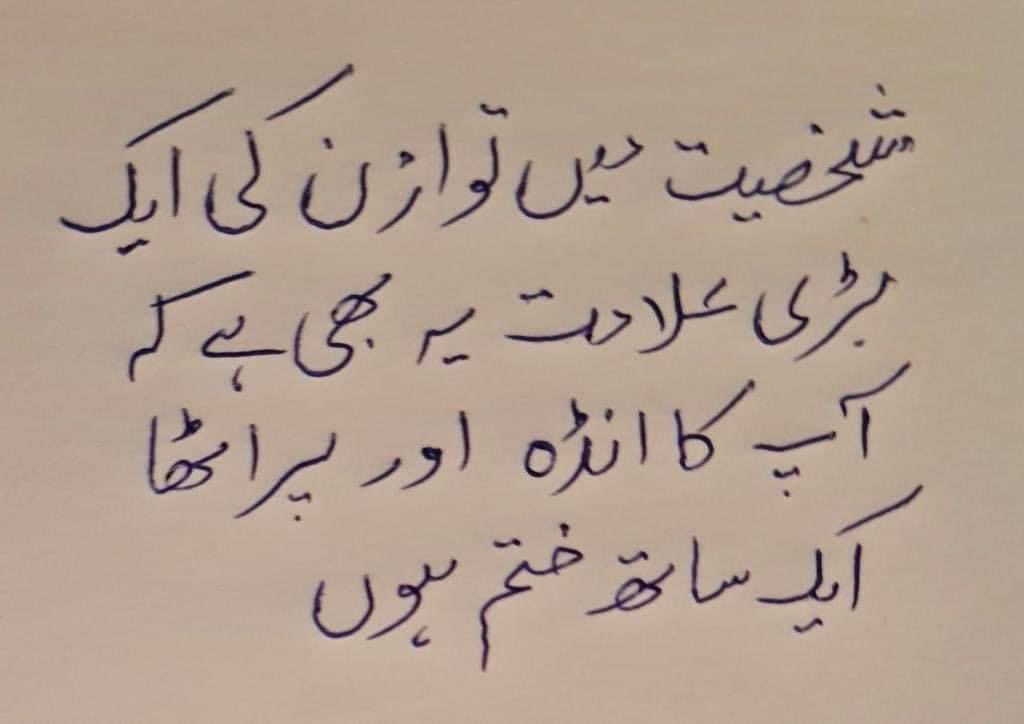 شخصیت میں توازن کی ایک
بڑی علامت یہ بھی ہے کہ
آپ کا انڈہ اور پراٹھا
ایک ساتھ ختم ہوں